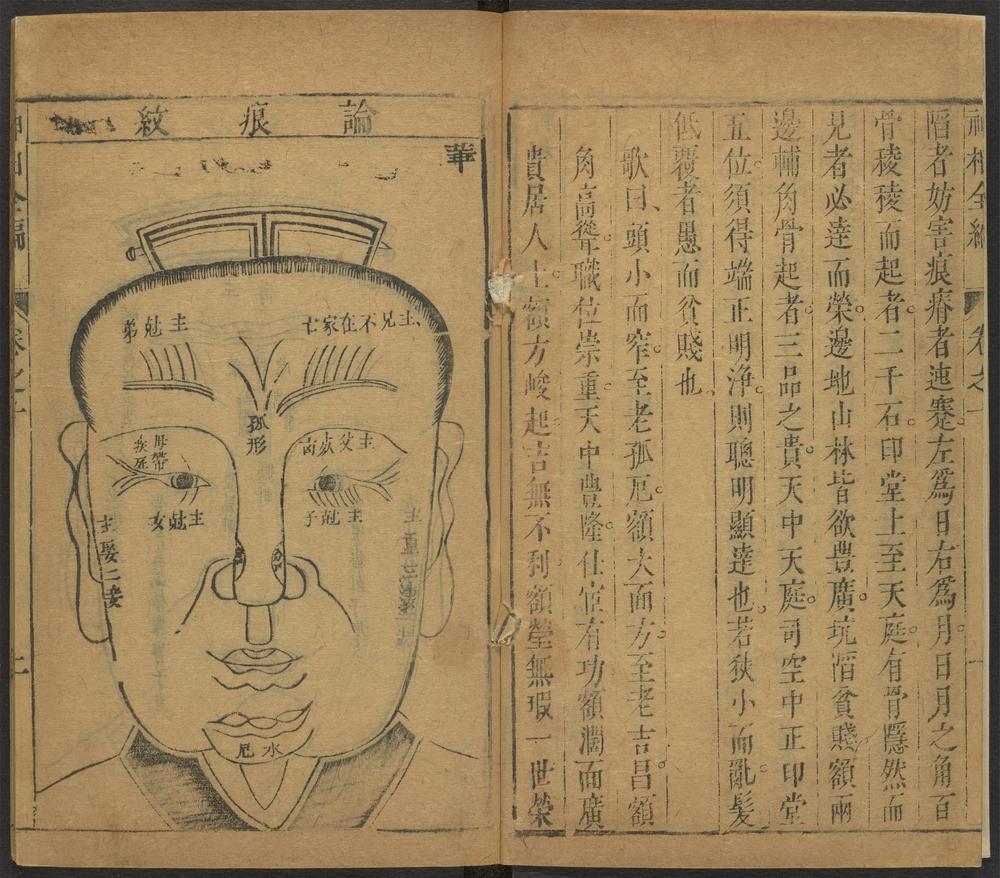 神相全編 卷之十
陷者妨害痕瘠者迍蹇左爲日右爲月日月之角百
骨稜稜而起者二千石印堂上至天庭有骨隱然而
見者必達而榮邊地山林皆欲豊廣坑陷貧賤額兩
邊輔角骨起者三品之貴天中天庭司空中正印堂
五位須得端正明淨則聰明顯達也若狹小而亂髮
低覆者愚而貧賤也
歌曰頭小而窄至老孤厄額大面方至老吉昌額
角高聳職位崇重天中豊隆仕宦有功額濶面廣
貴居人上額方峻起吉無不利額瑩無瑕一世榮
華
論痕紋
主兄不在家亡
主尅弟
孤形
主父
肚帶
疾死
主尅子
主尅女
主娶二妻
水厄
神相全編